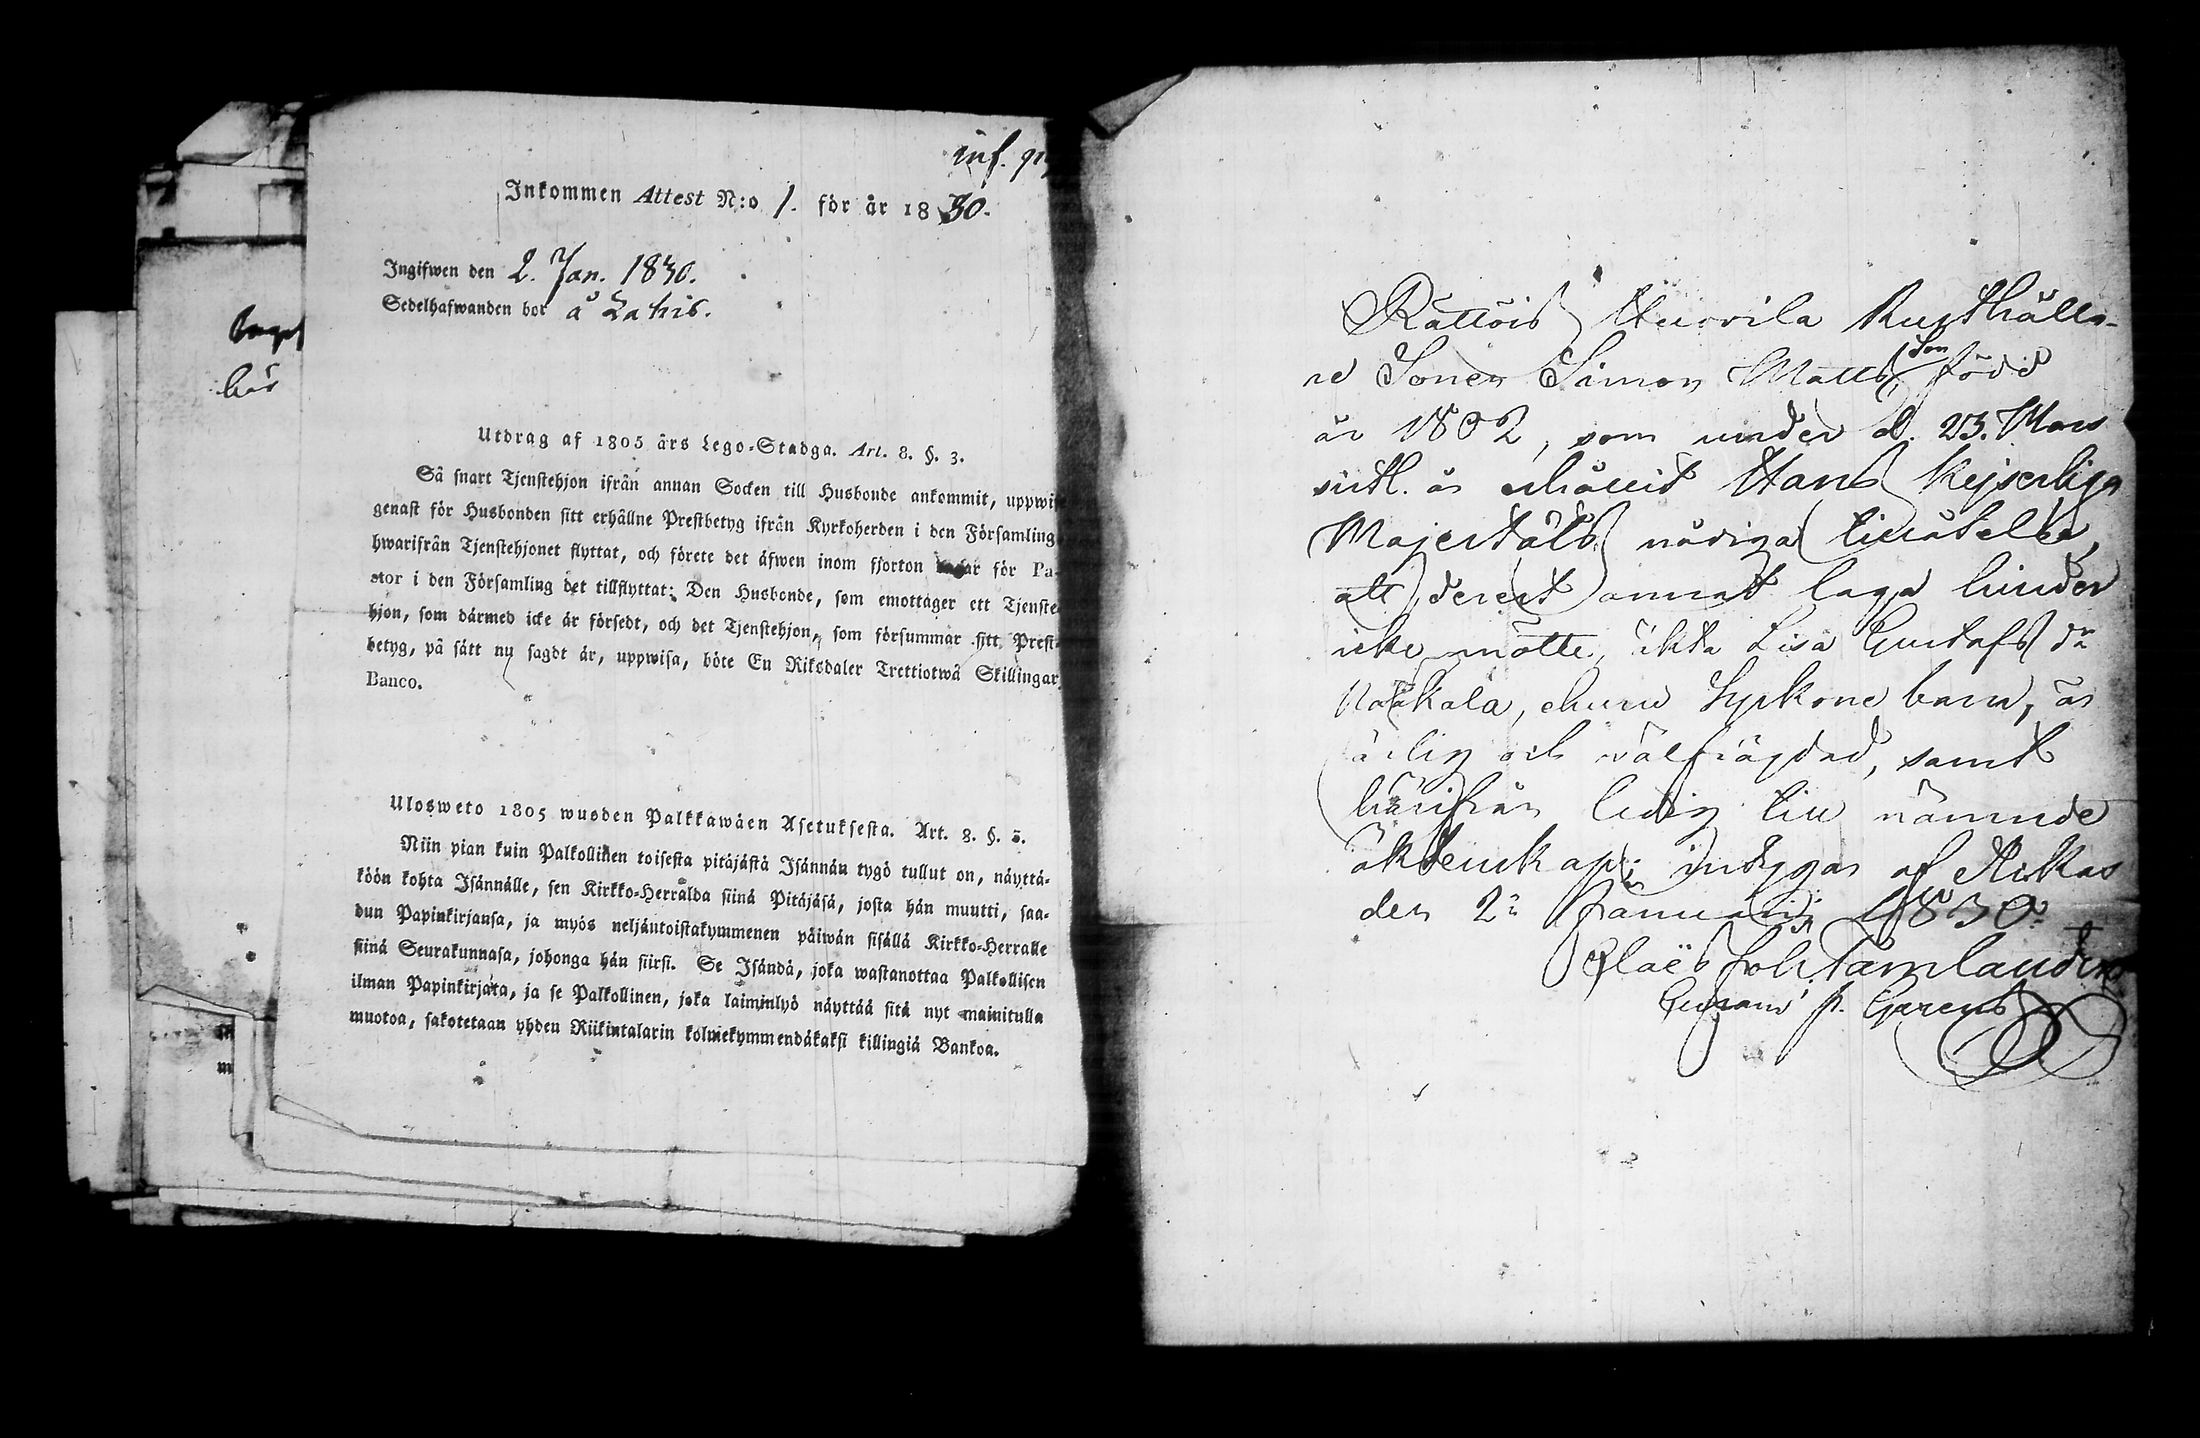 inf. pig
Inkommen Attest N:o 1. för år 1830.
Ingifwen den 2. Jan. 1830.
Sedelhafwanden bor å Lahis.
här
Utdrag af 1805 års Lego-Stadga. Art. 8. §. 3.
Så snart Tjenstehjon ifrån annan Socken till Husbonde ankommit, uppwi
genast för Husbonden sitt erhållne Prestbetyg ifrån Kyrkoherden i den Församling
hwarifrån Tjenstehjonet flyttat, och förete det äfwen inom fjorton dagar för Pa-
stor i den Församling det tillflyttat: Den Husbonde, som emottager ett Tjenste-
hjon, som därmed icke är försedt, och det Tjenstehjon, som försummar sitt Prest-
betyg, på sätt nu sagdt är, uppwisa, böte En Riksdaler Trettiotwå Skillingar
Banco.
Ulosweto 1805 wuoden Palkkawäen Asetuksesta. Art. 8. §. 3.
Niin pian kuin Palkollinen toisesta pitäjästä Isännän tygö tullut on, näyttä-
köön kohta Isännälle, sen Kirkko-Herralda siinä Pitäjäsä, josta hän muutti, saa-
dun Papinkirjansa, ja myös neljäntoistakymmenen päiwän sisällä Kirkko-Herralle
siinä Seurakunnasa, johonga hän siirsi. Se Isändä, joka wastanottaa Palkollisen
ilman Papinkirjata, ja se Palkollinen, joka laiminlyö näyttää sitä nyt mainitulla
muotoa, sakotetaan yhden Riikintalarin kolmekymmendäkaksi killingiä Bankoa.
Rättöis Huovila Rusthålla-
re Sonen Simon Matts Son född
år 1802, som under d. 23. Mars
sistl. år erhållit Hans Kejserliga
Majestäts nådiga tillåtelse,
att, derest annat laga hinder
icke mötte, äkta Lisa Gustafs dr
Naakala, ehuru Syskone barn, är
ärlig och välfrägdad, samt
härifrån ledig till nämnde
äktenskap; intygas af Kirkas
den 2n Januarii 1830.
Claës Joh. Tamlander